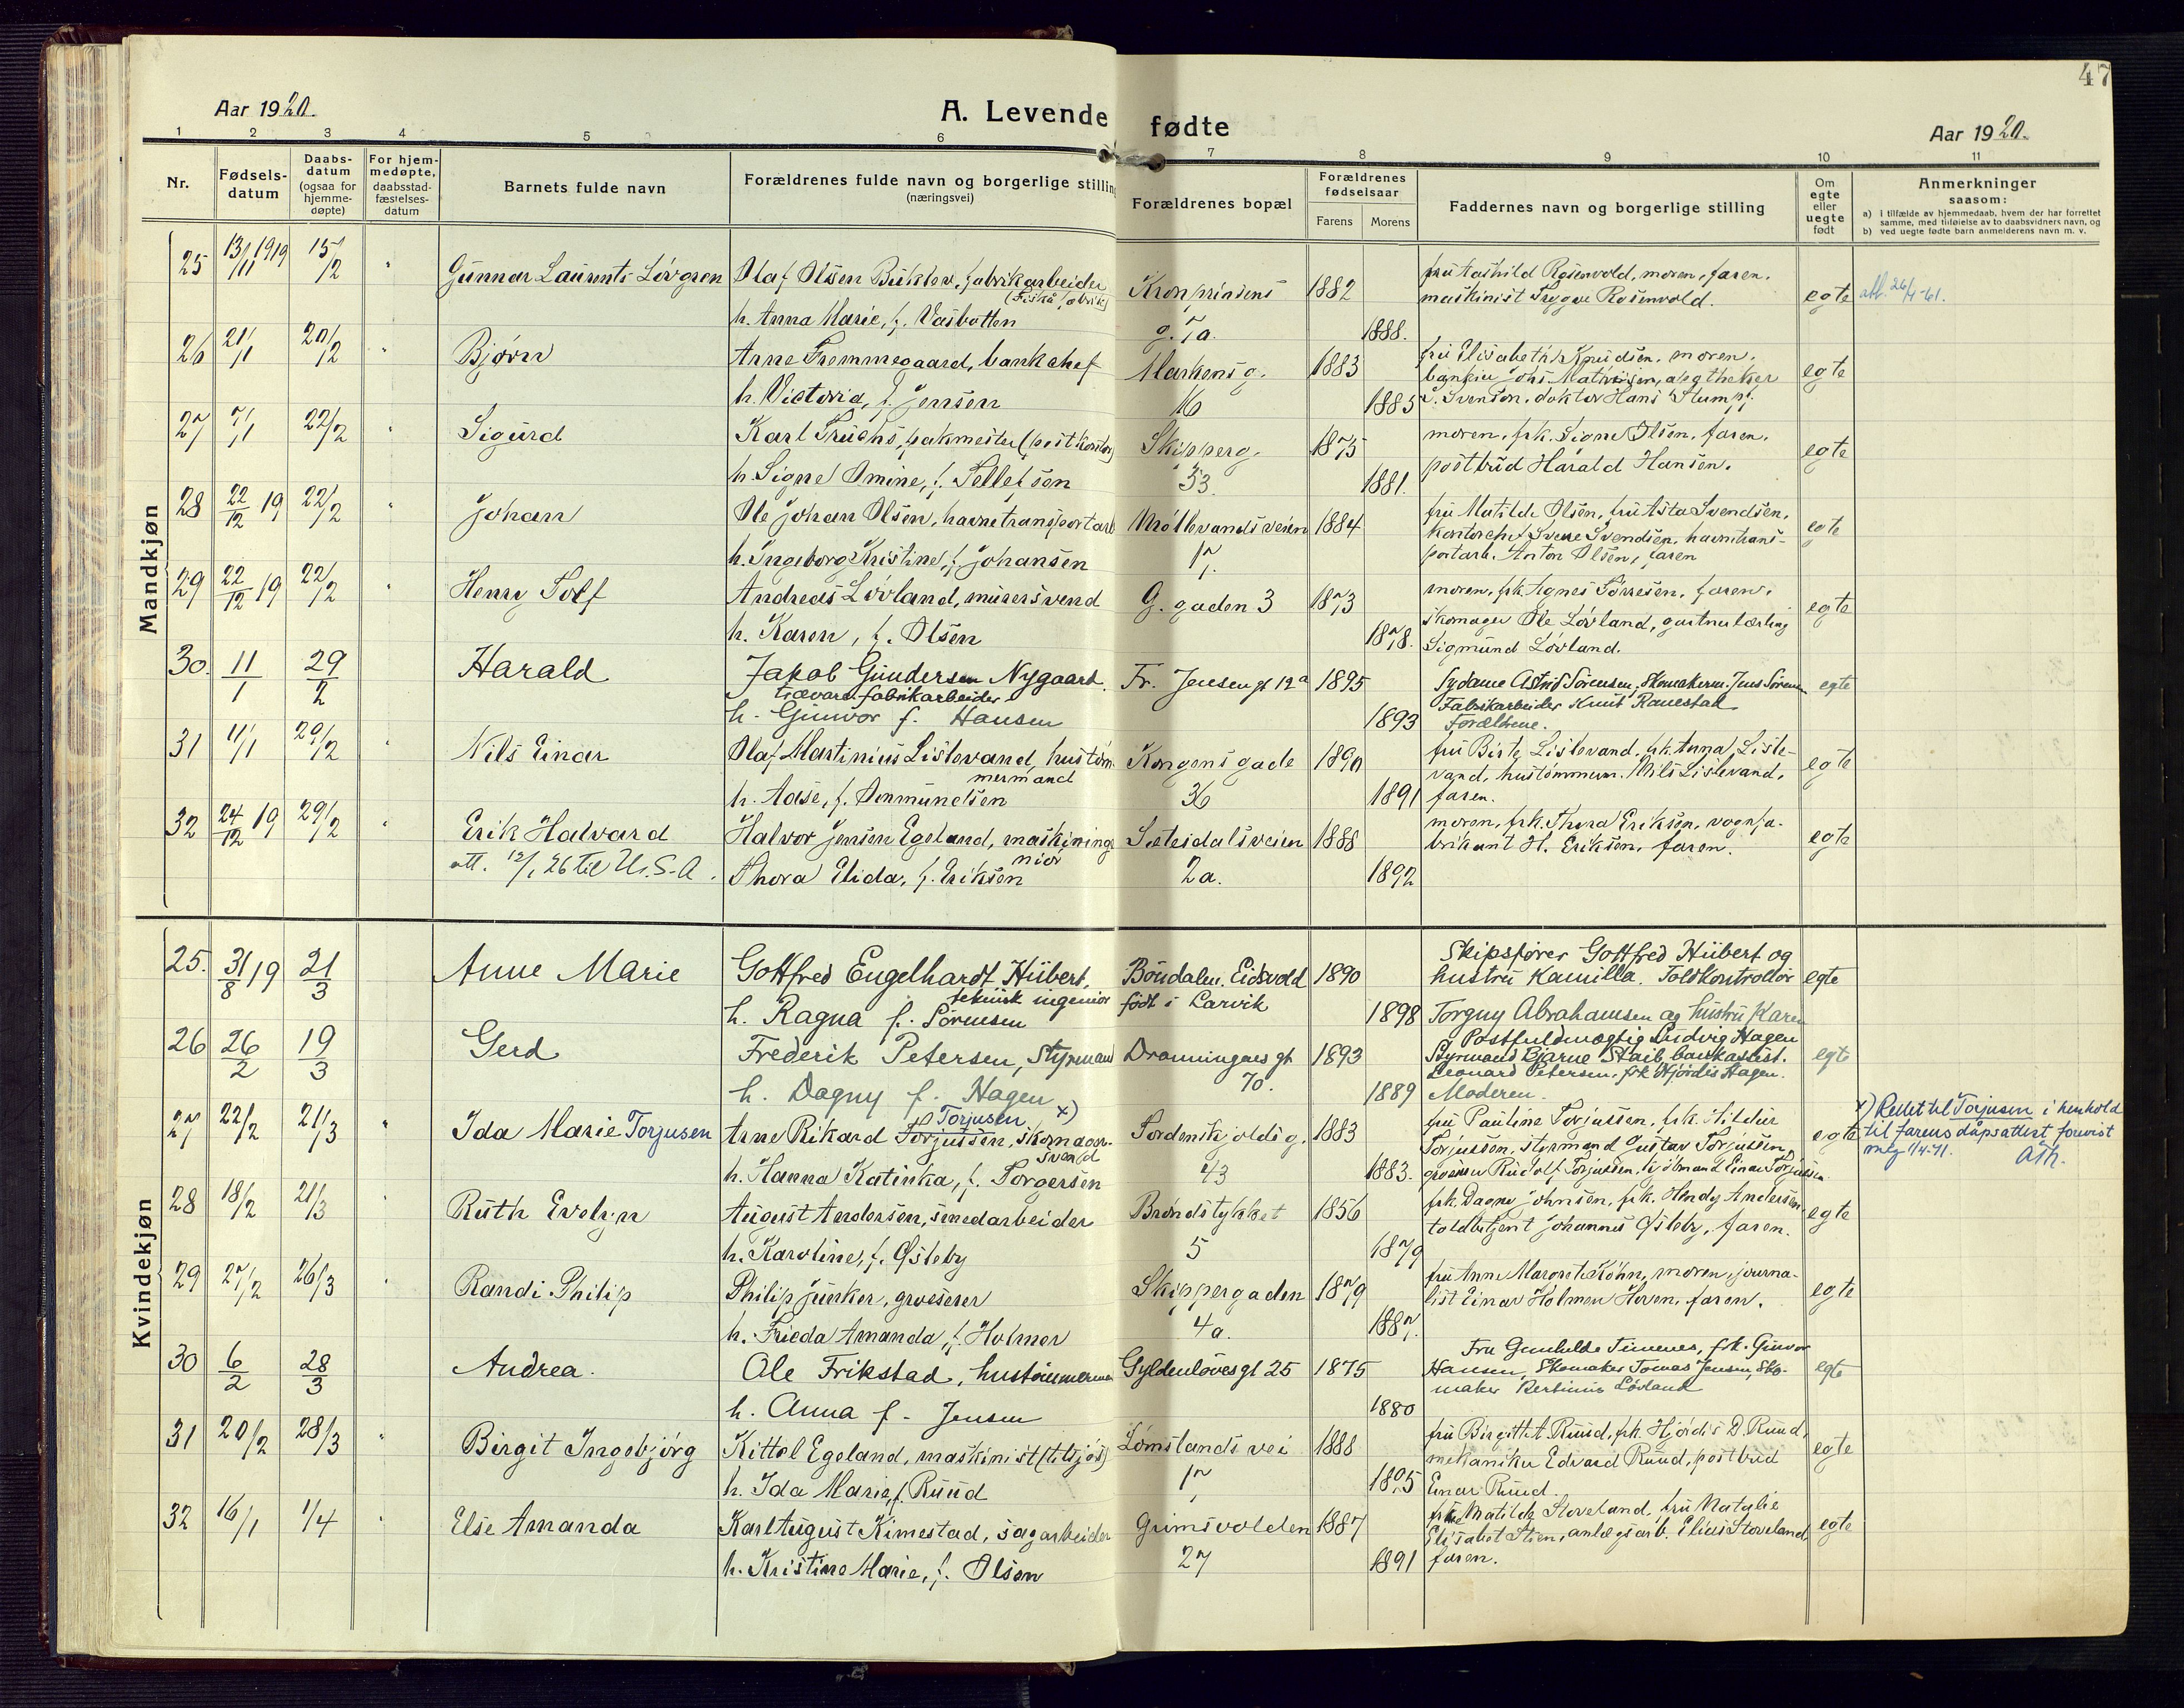 47
Aar 1920.
A. Levende fødte
Aar 1920.
1 2 3 4 5 6 7 8 9 10 11
Nr.
Fødsels-
datum
Daabs-
datum
(ogsaa for
hjemme-
døpte)
For hjem-
medøpte,
daabsstad-
fæstelses-
datum
Barnets fulde navn
Forældrenes fulde navn og borgerlige stilling
(næringsvei)
Forældrenes bopæl
Forældrenes
fødselsaar
Farens Morens
Faddernes navn og borgerlige stilling
Om
egte
eller
uegte
født
Anmerkninger
saasom:
a) I tilfælde av hjemmedaab, hvem der har forrettet
samme, med tilføielse av to daabsvidners navn, og
b) ved uegte fødte barn anmelderens navn m. v.
Mandkjøn
25 13/11 1919 15/2 " Gunnar Laurents Lövgren Olaf Olsen Buktev, fabrikarbeider Kronprinsens 1882 fru Aashild Rosenvold, moren, faren, egte att. 26/4-61.
(Fiskå fabrik) maskinist Trygve Rosenvold.
h. Anna Marie, f. Vasbotten g. 7a. 1888.
26 21/1 20/2 " Bjørn Arne Fremmegaard, bankchef Markensg. 1883 fru Elisabeth Knudsen, moren, egte
bankier Johs Mathisen, apotheker
h. Victoria, f. Jensen 16 1885 S. Svenson, doktor Hans Stumpf.
27 7/1 22/2 " Sigurd Karl Fuchs, pakmester (postkontor) Skipperg. 1875 moren, frk. Signe Olsen, faren, egte
postbud Harald Hansen.
h. Signe Omine, f. Tellefsen 53. 1881.
28 22/12 19 22/2 " Johan Ole Johan Olsen, havnetransportarb Møllevandsveien 1884 fru Matilde Olsen, fru Asta Svendsen, egte
kontorchef Svere Svendsen, havnetrans-
h. Ingeborg Kristine, f. Johansen 17. portarb. Anton Olsen, faren
29 22/12 19 22/2 " Henry Tolf Andreas Lövland, murersvend G. gaden 3 1873 moren, frk. Agnes Törresen, faren, egte
skomager Ole Lövland, gartnerlærling
h. Karen, f. Olsen 1878. Sigmund Lövland.
30. 11/1 29/2 Harald Jakob Gundersen Nygaard. Fr. Jensensgt 12a 1895 Sydame Astrid Sörensen, Skomakerm. Jens Sörensen egte
trævarefabrikarbeider Fabrikarbeider Knut Ranestad
h. Gunvor f. Hansen 1893 Forældrene.
31 11/1 29/2 " Nils Einar Olaf Martinius Listevand, hustöm- Kongensgade 1890 fru Birte Listevand, frk. Anna Liste- egte
mermand vand, hustömmerm. Nils Listevand,
h. Aase, f. Aanmundsen 36 1891 faren.
32 24/12 19 29/2 " Erik Halvard Halvor Jensen Egeland, maskininge Setesdalsveien 1888 moren, frk. Thora Eriksen, vognfa- egte
niör brikant H. Eriksen, faren.
att. 12/1 26 til U.S.A. Thora Elida, f. Eriksen 2a. 1892
Kvindekjøn
25. 31/8 19 21/3 " Anne Marie Gottfred Engelhardt Hübert, Böndalen, Eidsvold 1890 Skipsfører Gottfred Hübert og
teknisk ingeniör født i Larvik hustru Kamilla. Toldkontrollör egte
h. Ragna f. Sörensen 1898 Torguy Abrahamsen og hustru Karen
26 26/2 19/3 Gerd Frederik Petersen, Styrmand Dronningens gt 1893 Postfuldmegtig Ludvig Hagen egte
Styrmand Bjarne Staib, bankassist.
Leonard Petersen, frk Hjördis Hagen.
h. Dagny f. Hagen 70. 1889 Moderen.
27 22/2 21/3 " Ida Marie Torjusen Arne Rikard Torjussen, skomager- Tordenskjoldsg. 1883 fru Pauline Torjussen, frk. Hildur egte x) Rettet til Torjusen i henhold
Torjusen x) svend Torjussen, styrmand Gustav Torjussen, til farens dåpsattest forevist
h. Hanna Katinka, f. Torgersen 43 1883. grosserer Rudolf Torjussen, sjömand Einar Torjussen meg 1/4-41. Ath.
28 18/2 21/3 Ruth Evelyn August Andersen, smedarbeider Brøndstykket 1856 frk. Dagny Johnsen, frk. Hendy Andersen egte
toldbetjent Johannes Østeby, faren.
h. Karoline, f. Østeby 5 1879
29 27/2 26/3 " Randi Philip Philip Junker, grosserer Skippergaden 1879 fru Anne Margrete Köhn, moren, journa- egte
list Einar Holmen Hoven, faren.
h. Frieda Amanda, f. Holmer 4a. 1887.
30 6/2 28/3 Andrea. Ole Frikstad, hustömmerman Gyldenlövesgt 25 1875 Fru Gunhilde Timenes, frk. Gunvor egte
Hansen, Skomaker Tomas Jensen, Sko-
h. Anna f. Jensen 1880 maker Bertinius Lövland
31 20/2 28/3 " Birgit Ingebjörg Kittel Egeland, maskinist (tilsjös) Lömslands vei 1888 fru Birgitte t. Ruud, frk. Hjördis D. Ruud, egte
mekaniker Edvard Ruud, postbud
h. Ida Marie, f. Ruud 17 1895 Einar Ruud.
32 16/1 1/4 " Else Amanda Karl August Kimestad, sagarbeider Grimsvolden 1887 frue Matilde Stoveland, fru Natalie egte
Elisabet Stien, anlægsarb. Elias Stoveland,
h. Kristine Marie, f. Olsen 27 1891 faren.